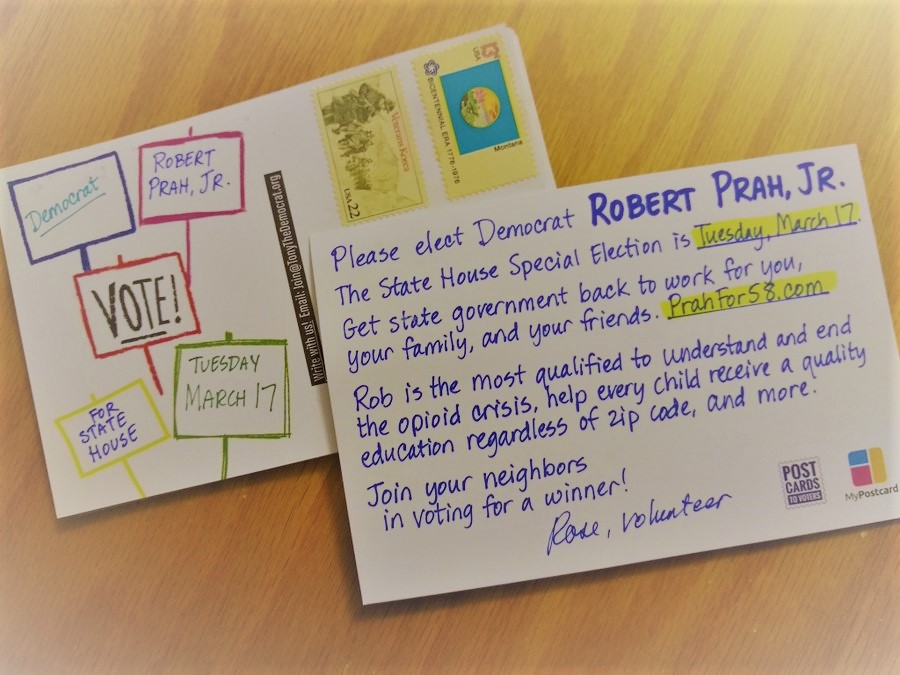 Democrat
ROBERT
PRAH, JR.
VOTE!
TUESDAY
MARCH 17
FOR
STATE
HOUSE
Write with us! Email: Join@TonyTheDemocrat.org
Veterans Korea
USA 22
USA 13
BICENTENNIAL ERA 1776-1976
Montana
Please elect Democrat ROBERT PRAH, JR.
The State House Special Election is Tuesday, March 17.
Get state government back to work for you,
your family, and your friends. PrahFor58.com
Rob is the most qualified to understand and end
the opioid crisis, help every child receive a quality
education regardless of zip code, and more!
Join your neighbors
in voting for a winner!
Rose, volunteer
POST
CARDS
TO VOTERS
MyPostcard